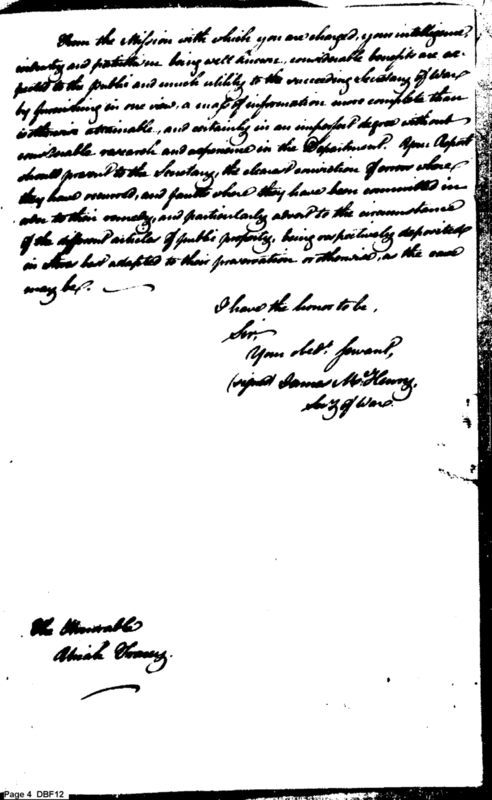 From the Mission with which you are charged, your intelligence,
industry and patriotism being well known, considerable benefits are ex-
pected to the public and much utility to the succeeding Secretary of War
by furnishing in one view, a mass of information more complete than
is otherwise attainable, and certainly in an imperfect degree without
considerable research and experience in the Department. Your Report
should present to the Secretary, the clearest conviction of errors where
they have occurred, and faults where they have been committed in
order to their remedy, and particularly advert to the circumstance
of the different articles of public property, being respectively deposited
in Stores best adapted to their preservation or otherwise, as the case
may be.
I have the honor to be,
Sir,
Your obedt. Servant,
(signed James McHenry,
Secy of War.
The Honorable
Uriah Tracy.
Page 4 DBF12